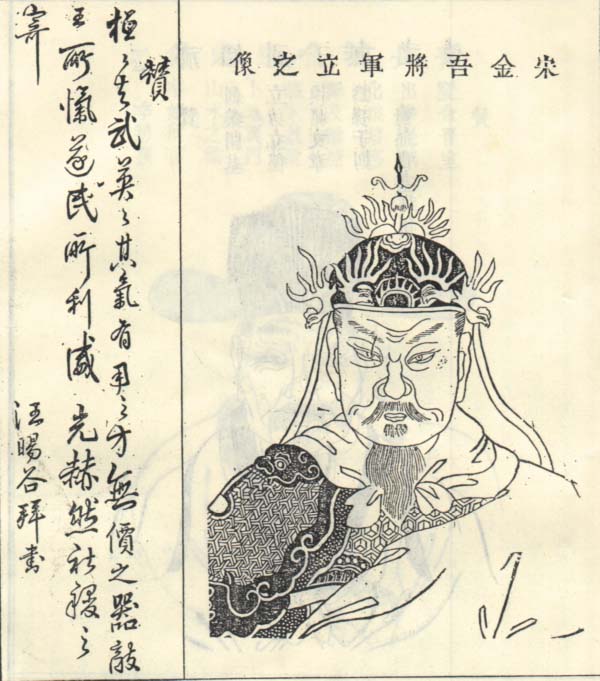 宋金吾將軍立之像
贊
桓〻其武英〻其氣有用之才無價之器敵
王所愾遂民所利威光赫然社稷之
寄
汪暘谷拜書